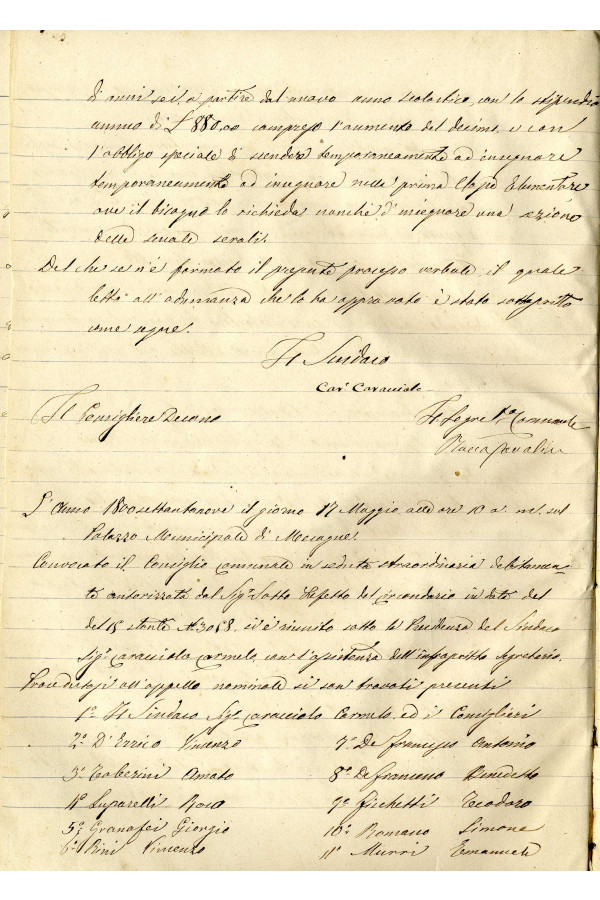 di anni sei, a partire dal nuovo anno scolastico, con lo stipendio
annuo di £ 880,00 compreso l'aumento del decimo, e con
l'obbligo speciale di scendere temporaneamente ad insegnare
temporaneamente ad insegnare nella prima Classe Elementare
ove il bisogno lo richieda nonchè d'insegnare una sezione
delle scuole serali.
Del che se n'è formato il presente processo verbale il quale
letto all'adunanza che lo ha approvato è stato sottoscritto
come segue.
Il Sindaco
Cav. Caracciolo
Il Consigliere Decano
Il Segr. Comunale
Rocco
L'Anno 1800settantanove il giorno 17 Maggio alle ore 10 a. m. sul
Palazzo Municipale di Mesagne.
Convocato il Consiglio comunale in seduta straordinaria debitamen-
te autorizzata dal Sig. Sotto Prefetto del circondario in data del
del 15 stante N. 3058, si è riunito sotto la Presidenza del Sindaco
Sig. Caracciolo Carmelo, con l'assistenza dell'infrascritto Segretario.
Procedutosi all'appello nominale si son trovati presenti
1° Il Sindaco Sig. Caracciolo Carmelo, ed i Consiglieri
2° D'Errico Vincenzo
7° De Francesco Antonio
3° Taberini Amato
8° De Francesco Benedetto
4° Luparelli Rocco
9° Ficchetti Teodoro
5° Granafei Giorgio
10° Romano Simone
6° Rini Vincenzo
11° Murri Emanuele